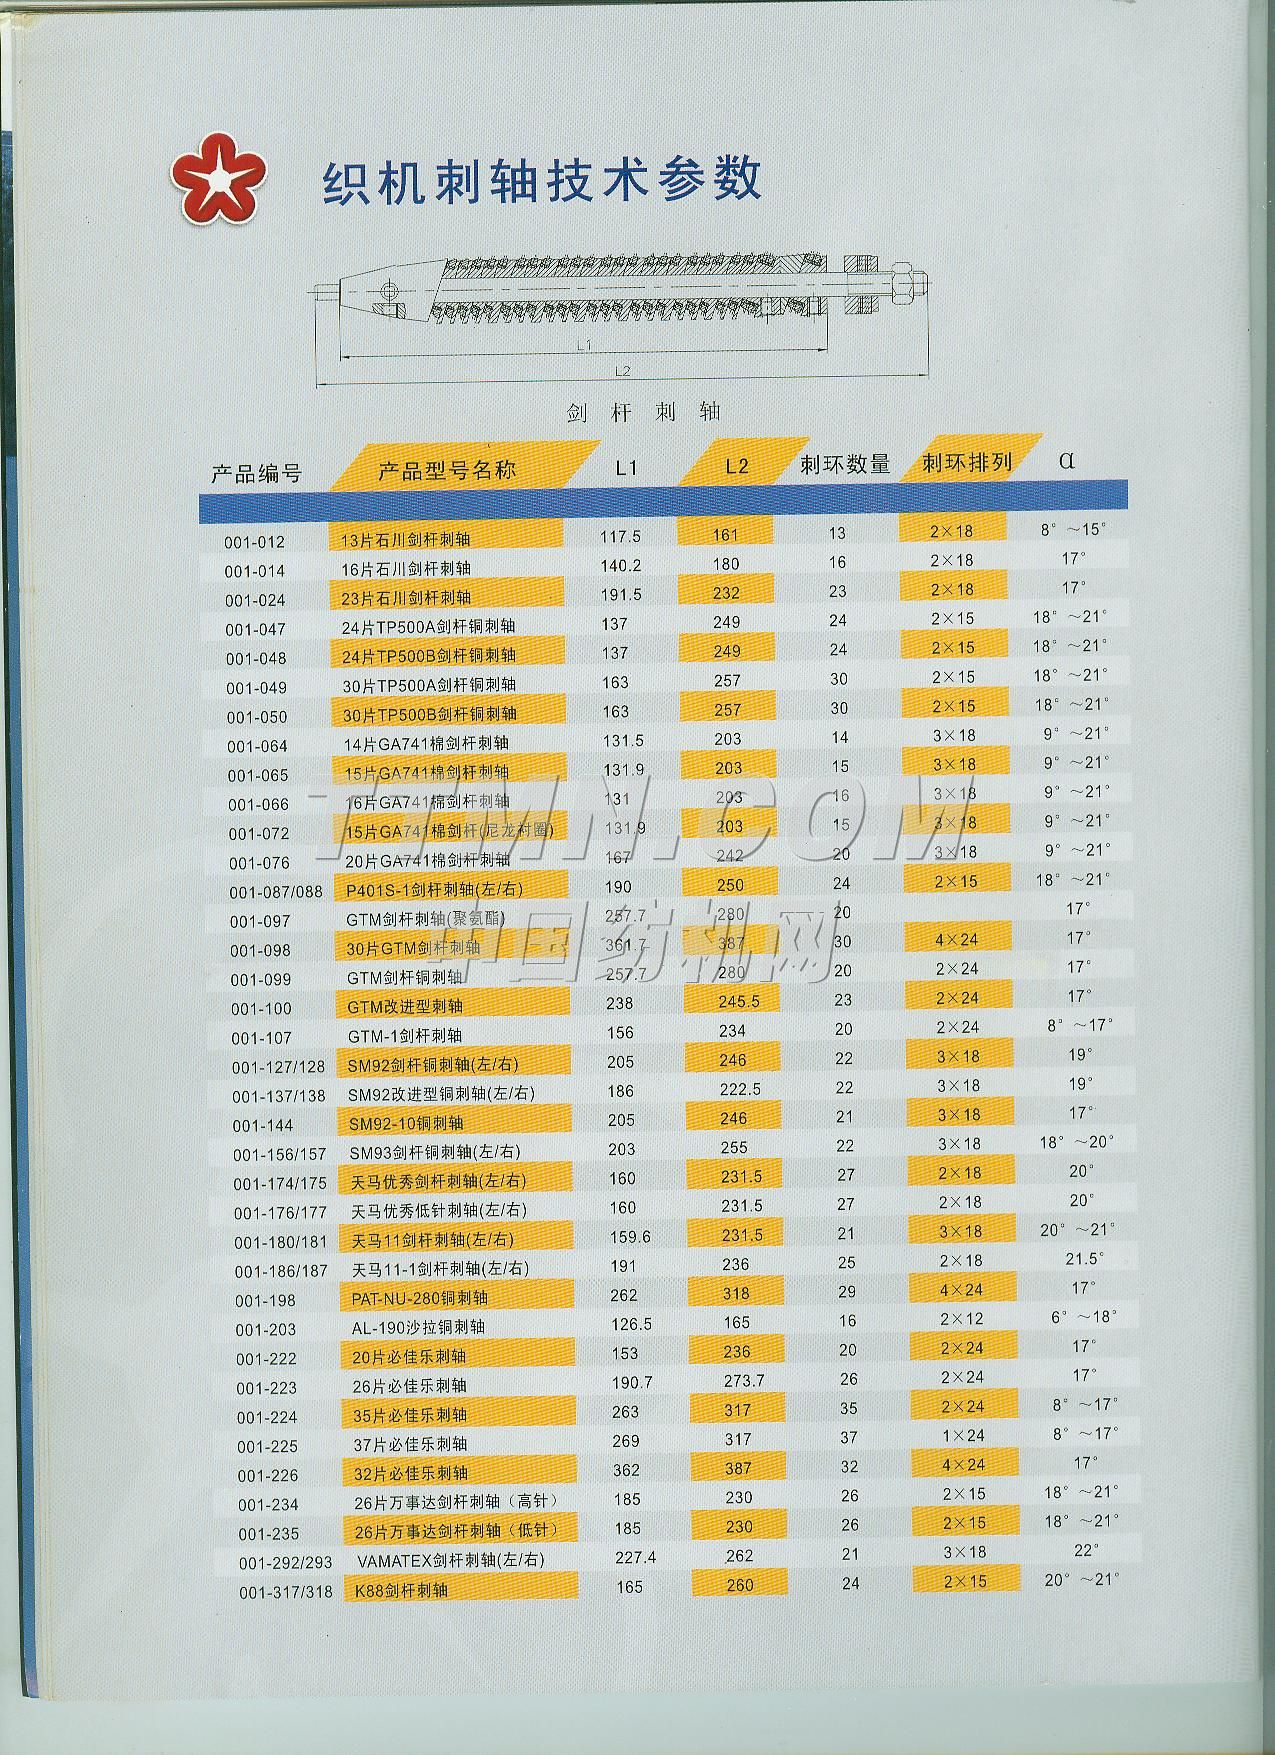 织机刺轴技术参数
L1
L2
剑杆刺轴
产品编号 产品型号名称 L1 L2 刺环数量 刺环排列 α
001-012 13片石川剑杆刺轴 117.5 161 13 2×18 8°~15°
001-014 16片石川剑杆刺轴 140.2 180 16 2×18 17°
001-024 23片石川剑杆刺轴 191.5 232 23 2×18 17°
001-047 24片TP500A剑杆铜刺轴 137 249 24 2×15 18°~21°
001-048 24片TP500B剑杆铜刺轴 137 249 24 2×15 18°~21°
001-049 30片TP500A剑杆铜刺轴 163 257 30 2×15 18°~21°
001-050 30片TP500B剑杆铜刺轴 163 257 30 2×15 18°~21°
001-064 14片GA741棉剑杆刺轴 131.5 203 14 3×18 9°~21°
001-065 15片GA741棉剑杆刺轴 131.9 203 15 3×18 9°~21°
001-066 16片GA741棉剑杆刺轴 131 203 16 3×18 9°~21°
001-072 15片GA741棉剑杆(尼龙衬圈) 131.9 203 15 3×18 9°~21°
001-076 20片GA741棉剑杆刺轴 167 242 20 3×18 9°~21°
001-087/088 P401S-1剑杆刺轴(左/右) 190 250 24 2×15 18°~21°
001-097 GTM剑杆刺轴(聚氨酯) 257.7 280 20 17°
001-098 30片GTM剑杆刺轴 361.7 387 30 4×24 17°
001-099 GTM剑杆铜刺轴 257.7 280 20 2×24 17°
001-100 GTM改进型刺轴 238 245.5 23 2×24 17°
001-107 GTM-1剑杆刺轴 156 234 20 2×24 8°~17°
001-127/128 SM92剑杆铜刺轴(左/右) 205 246 22 3×18 19°
001-137/138 SM92改进型铜刺轴(左/右) 186 222.5 22 3×18 19°
001-144 SM92-10铜刺轴 205 246 21 3×18 17°
001-156/157 SM93剑杆铜刺轴(左/右) 203 255 22 3×18 18°~20°
001-174/175 天马优秀剑杆刺轴(左/右) 160 231.5 27 2×18 20°
001-176/177 天马优秀低针刺轴(左/右) 160 231.5 27 2×18 20°
001-180/181 天马11剑杆刺轴(左/右) 159.6 231.5 21 3×18 20°~21°
001-186/187 天马11-1剑杆刺轴(左/右) 191 236 25 2×18 21.5°
001-198 PAT-NU-280铜刺轴 262 318 29 4×24 17°
001-203 AL-190沙拉铜刺轴 126.5 165 16 2×12 6°~18°
001-222 20片必佳乐刺轴 153 236 20 2×24 17°
001-223 26片必佳乐刺轴 190.7 273.7 26 2×24 17°
001-224 35片必佳乐刺轴 263 317 35 2×24 8°~17°
001-225 37片必佳乐刺轴 269 317 37 1×24 8°~17°
001-226 32片必佳乐刺轴 362 387 32 4×24 17°
001-234 26片万事达剑杆刺轴（高针） 185 230 26 2×15 18°~21°
001-235 26片万事达剑杆刺轴（低针） 185 230 26 2×15 18°~21°
001-292/293 VAMATEX剑杆刺轴(左/右) 227.4 262 21 3×18 22°
001-317/318 K88剑杆刺轴 165 260 24 2×15 20°~21°
TTMN.COM
中国纺机网